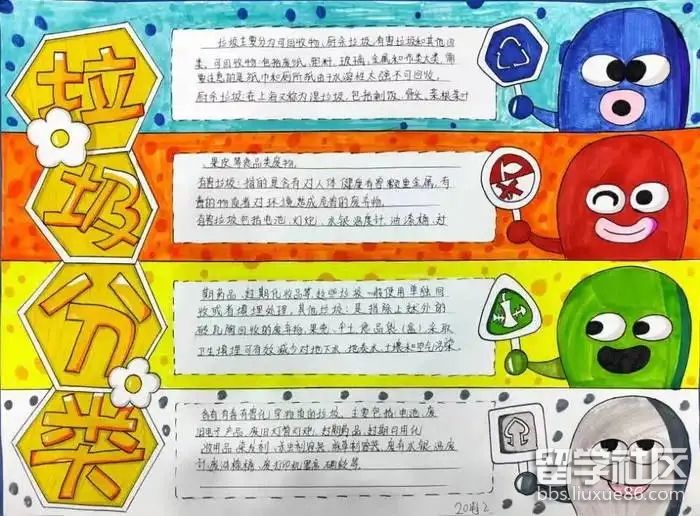 垃
圾
分
类
垃圾主要分为可回收物,厨余垃圾,有害垃圾和其他四
类,可回收物:包括废纸,塑料,玻璃,金属和布类大类,需
要注意的是纸巾和厕所纸由于水溶性太强不可回收。
厨余垃圾:在上海又称为湿垃圾,包括剩饭,骨头,菜根菜叶
果皮等食品类废物。
有害垃圾:指的是含有对人体健康有害重金属,有
害的物质或者对环境造成危害的废弃物。
有害垃圾包括电池,灯炮,水银温度计,油漆桶,过
期药品,过期化妆品等,这些垃圾一般使用单独回
收或者填埋处理。其他垃圾:是指除上述外的
砖瓦陶 回收的废弃物,果壳,尘土食品袋(盒),采取
卫生填埋可有效减少对地下水,地表水,土壤和空气污染。
含有有毒有害化学物质的垃圾。主要包括电池,废
旧电子产品,废旧灯管灯炮,过期药品,过期日用化
妆用品,染发剂,杀虫剂容器,除草剂容器,废弃水银温度
计,废油漆桶,废打印机墨盒,硒鼓等
留学社区
bbs.liuxue86.com